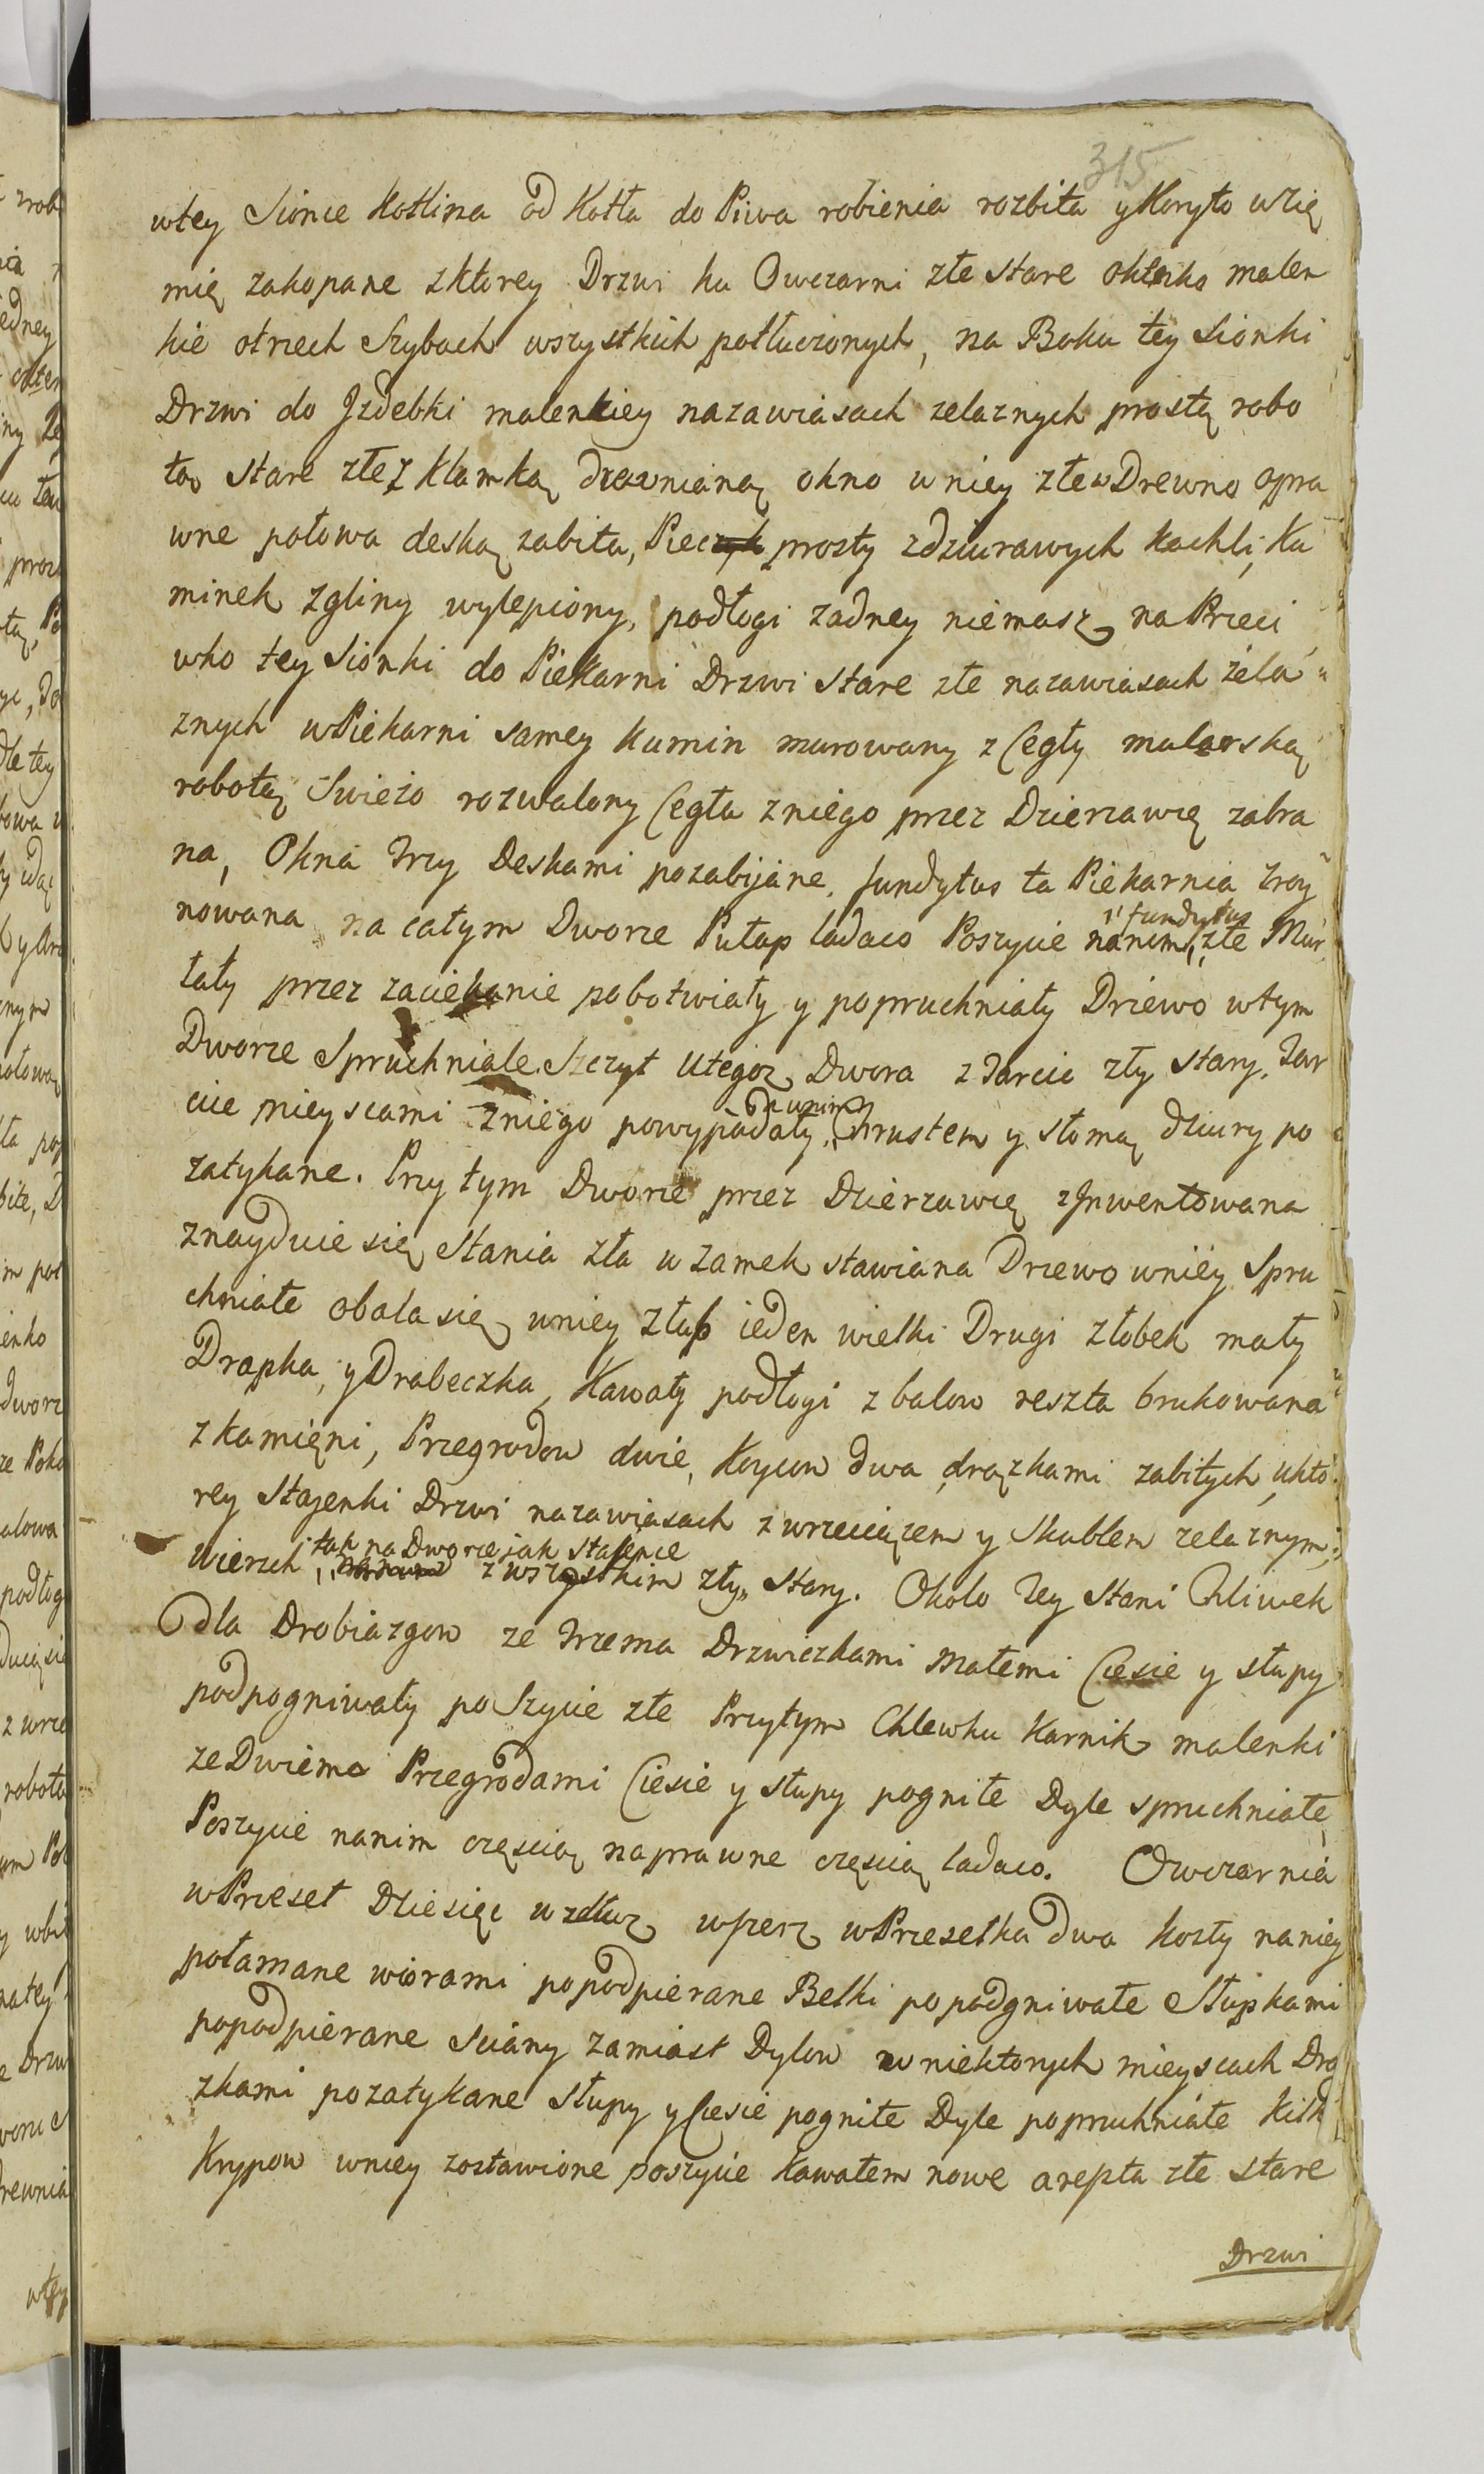 315
wtey Sionce Kotlina od Kotła do Piwa robienia rozbita y Koryto wzię
mię zakopane zktorey Drzwi ku Owczarni złe stare okienko malen
kie otrzech Szybach wszystkich potłuczonych, na Boku tey Sionki
Drzwi do Jzdebki malenkiey nazawiasach zelaznych prostą robo
tą stare złe z klamką drewnianą okno w niey złe w Drewno opra
wne połowa deską zabita, Piec prosty zdziurawych kachli, Ka
minek zgliny wylepiony, podłogi zadney niemasz, na Przeci
wko tey Sionki do Piekarni Drzwi stare złe nazawiasach żela
znych w Piekarni samey kumin murowany z Cegły mularską
robotą Swieżo rozwalony Cegła zniego przez Dzierzawię zabra
na, Okna trzy Deskami pozabijane, fundytus ta Piekarnia zroy
nowana, na całym Dworze Pułap ladaco Poszycie nanim złe Mur
fundytus
łaty przez zaciekanie pobotwiały y popruchniały Drzewo wtym
Dworze Spruchniałe Szczyt utegoz Dwora z Tarcic zły stary, Tar
cice mieyscami zniego powypadały, Chrustem y słomą dziury po
zatykane. Przytym Dworze przez Dzierzawię zJnwentowana
znayduie się Stania zła w zamek stawiana Drzewo wniey Spru
chniałe obala się, wniey złub ieden wielki Drugi złobek mały
Drapka, y Drabeczka, Kawały podłogi z balow reszta brukowana
z kamięni, Przegrodow dwie, Koycow dwa drązkami zabitych, ukto
rey Stajenki Drzwi nazawiasach z wrzeciązem y Skublem zelaznym;
tak na Dworze jak Stajence
wierzch z wszystkim zły, stary. Okolo tey Stani Chliwek
dla Drobiazgow ze trzema Drzwiczkami małemi Ciesie y słupy
podpogniwały poszycie złe Przytym Chlewku Karnik malenki
ze Dwiema Przegrodami Ciesie y słupy pogniłe Dyle spruchniałe
Poszycie nanim częścią naprawne częścią ladaco. Owczarnia
w Przeset Dziesięc wzdłuz wszerz w Przesetka dwa kozły naniey
połamane wiorami popodpierane Belki popodgniwałe Słupkami
popodpierane sciany zamiast Dylow w niektorych mieyscach Drą
zkami pozatykane słupy y Ciesie pogniłe Dyle popruchniałe Kilk
Krypow wniey zostawione poszycie kawałem nowe areszta złe stare
Drzwi